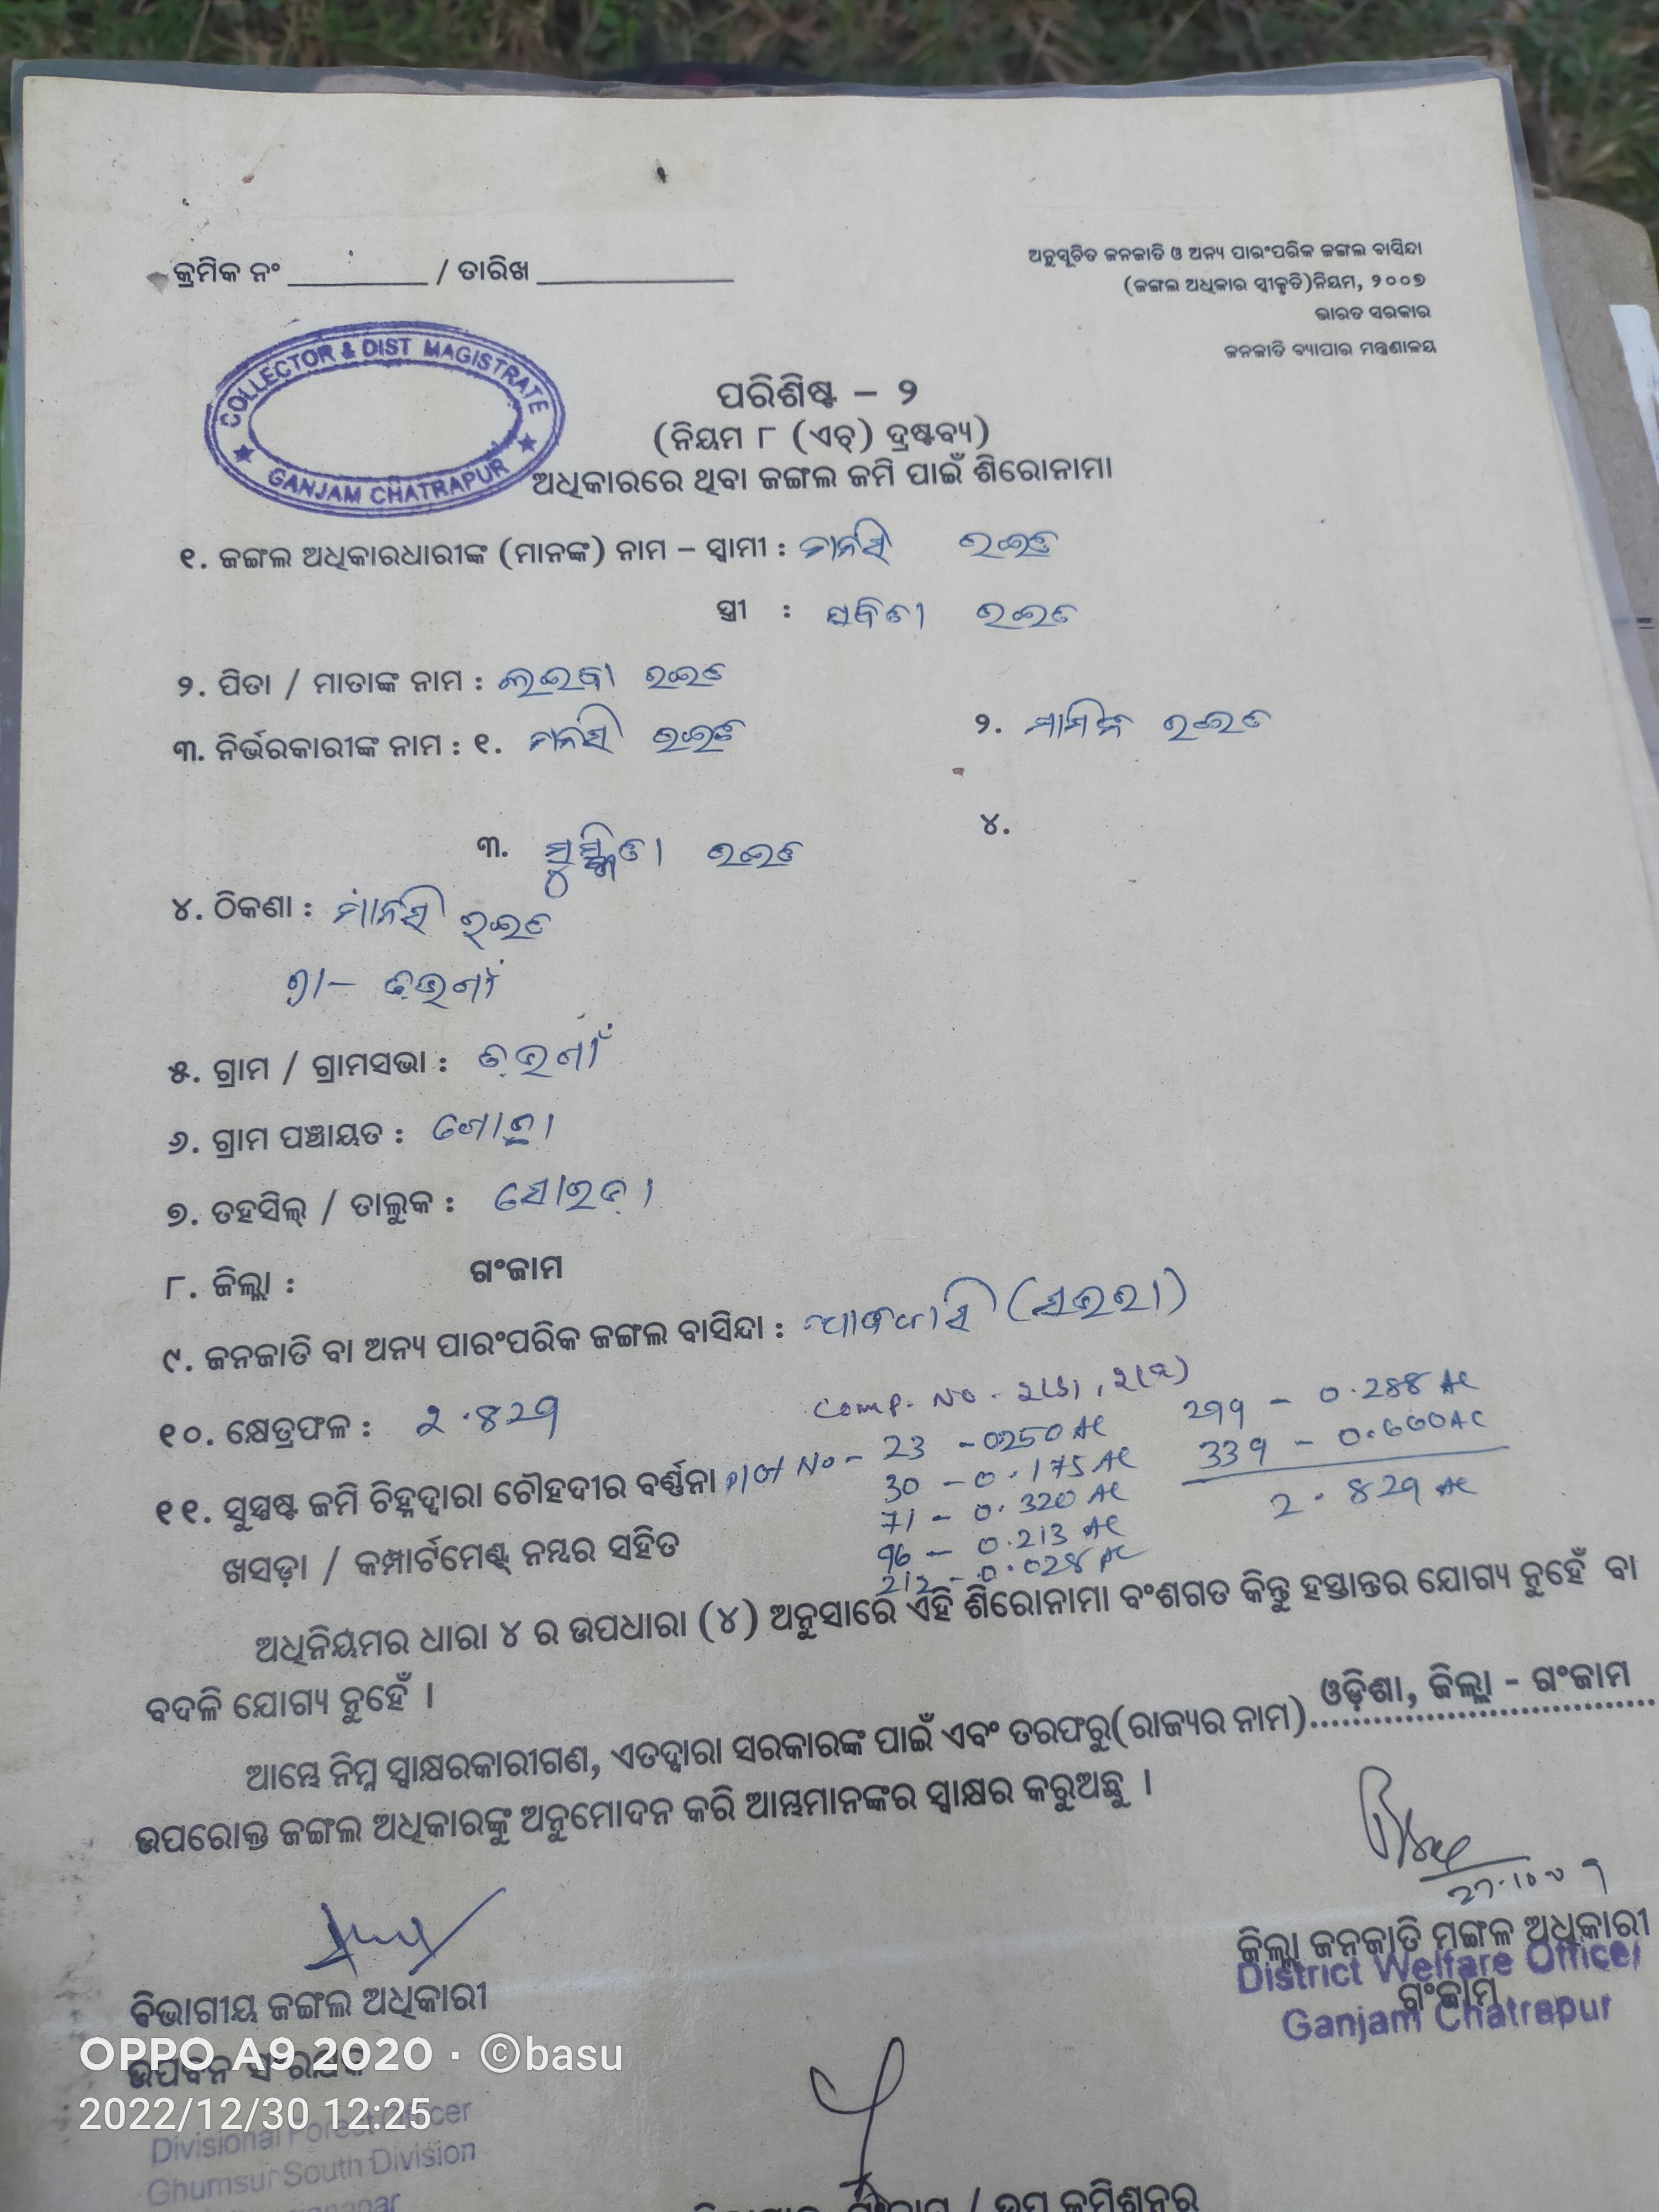 କ୍ରମିକ ନଂ ________ / ତାରିଖ ____________
ଅନୁସୂଚିତ ଜନଜାତି ଓ ଅନ୍ୟ ପାରଂପରିକ ଜଙ୍ଗଲ ବାସିନ୍ଦା
(ଜଙ୍ଗଲ ଅଧିକାର ସ୍ୱୀକୃତି)ନିୟମ, ୨୦୦୭
ଭାରତ ସରକାର
ଜନଜାତି ବ୍ୟାପାର ମନ୍ତ୍ରଣାଳୟ
COLLECTOR & DIST MAGISTRATE
GANJAM CHATRAPUR
ପରିଶିଷ୍ଟ – ୨
(ନିୟମ ୮ (ଏଚ୍) ଦ୍ରଷ୍ଟବ୍ୟ)
ଅଧିକାରରେ ଥିବା ଜଙ୍ଗଲ ଜମି ପାଇଁ ଶିରୋନାମା
୧. ଜଙ୍ଗଲ ଅଧିକାରଧାରୀଙ୍କ (ମାନଙ୍କ) ନାମ – ସ୍ୱାମୀ : ମାନସି ରଇତ
ସ୍ତ୍ରୀ : ରଇତ
୨. ପିତା / ମାତାଙ୍କ ନାମ : ରଇତ
୩. ନିର୍ଭରକାରୀଙ୍କ ନାମ : ୧. ମାନସି ରଇତ ୨. ରଇତ
୩. ରଇତ ୪.
୪. ଠିକଣା : ମାନସି ରଇତ
୫. ଗ୍ରାମ / ଗ୍ରାମସଭା :
୬. ଗ୍ରାମ ପଞ୍ଚାୟତ :
୭. ତହସିଲ୍ / ତାଲୁକ : ସୋରଡ଼ା
୮. ଜିଲ୍ଲା : ଗଂଜାମ
୯. ଜନଜାତି ବା ଅନ୍ୟ ପାରଂପରିକ ଜଙ୍ଗଲ ବାସିନ୍ଦା : (ସଉରା)
Comp. No -
୧୦. କ୍ଷେତ୍ରଫଳ : ୨.୫29
୧୧. ସୁସ୍ପଷ୍ଟ ଜମି ଚିହ୍ନଦ୍ୱାରା ଚୌହଦୀର ବର୍ଣ୍ଣନା plot No - 23 - 0250 AC
30 - 0.175 AC
71 - 0.320 AC
96 - 0.213 AC
212 - 0.028 AC
299 - 0.288 AC
339 - 0.600 AC
2.829 AC
ଖସଡ଼ା / କମ୍ପାର୍ଟମେଣ୍ଟ ନମ୍ବର ସହିତ
ଅଧିନିୟମର ଧାରା ୪ ର ଉପଧାରା (୪) ଅନୁସାରେ ଏହି ଶିରୋନାମା ବଂଶଗତ କିନ୍ତୁ ହସ୍ତାନ୍ତର ଯୋଗ୍ୟ ନୁହେଁ ବା
ବଦଳି ଯୋଗ୍ୟ ନୁହେଁ ।
ଆମ୍ଭେ ନିମ୍ନ ସ୍ୱାକ୍ଷରକାରୀଗଣ, ଏତଦ୍ୱାରା ସରକାରଙ୍କ ପାଇଁ ଏବଂ ତରଫରୁ(ରାଜ୍ୟର ନାମ) ଓଡ଼ିଶା, ଜିଲ୍ଲା - ଗଂଜାମ
ଉପରୋକ୍ତ ଜଙ୍ଗଲ ଅଧିକାରଙ୍କୁ ଅନୁମୋଦନ କରି ଆମ୍ଭମାନଙ୍କର ସ୍ୱାକ୍ଷର କରୁଅଛୁ ।
ଜିଲ୍ଲା ଜନଜାତି ମଙ୍ଗଳ ଅଧିକାରୀ
District Welfare Officer
ଗଂଜାମ
Ganjam Chatrapur
ବିଭାଗୀୟ ଜଙ୍ଗଲ ଅଧିକାରୀ
ଉପବନ ସଂରକ୍ଷକ
OPPO A9 2020 · ©basu
2022/12/30 12:25
Divisional Forest Officer
Ghumsur South Division
/ ଉପ କମିଶନର